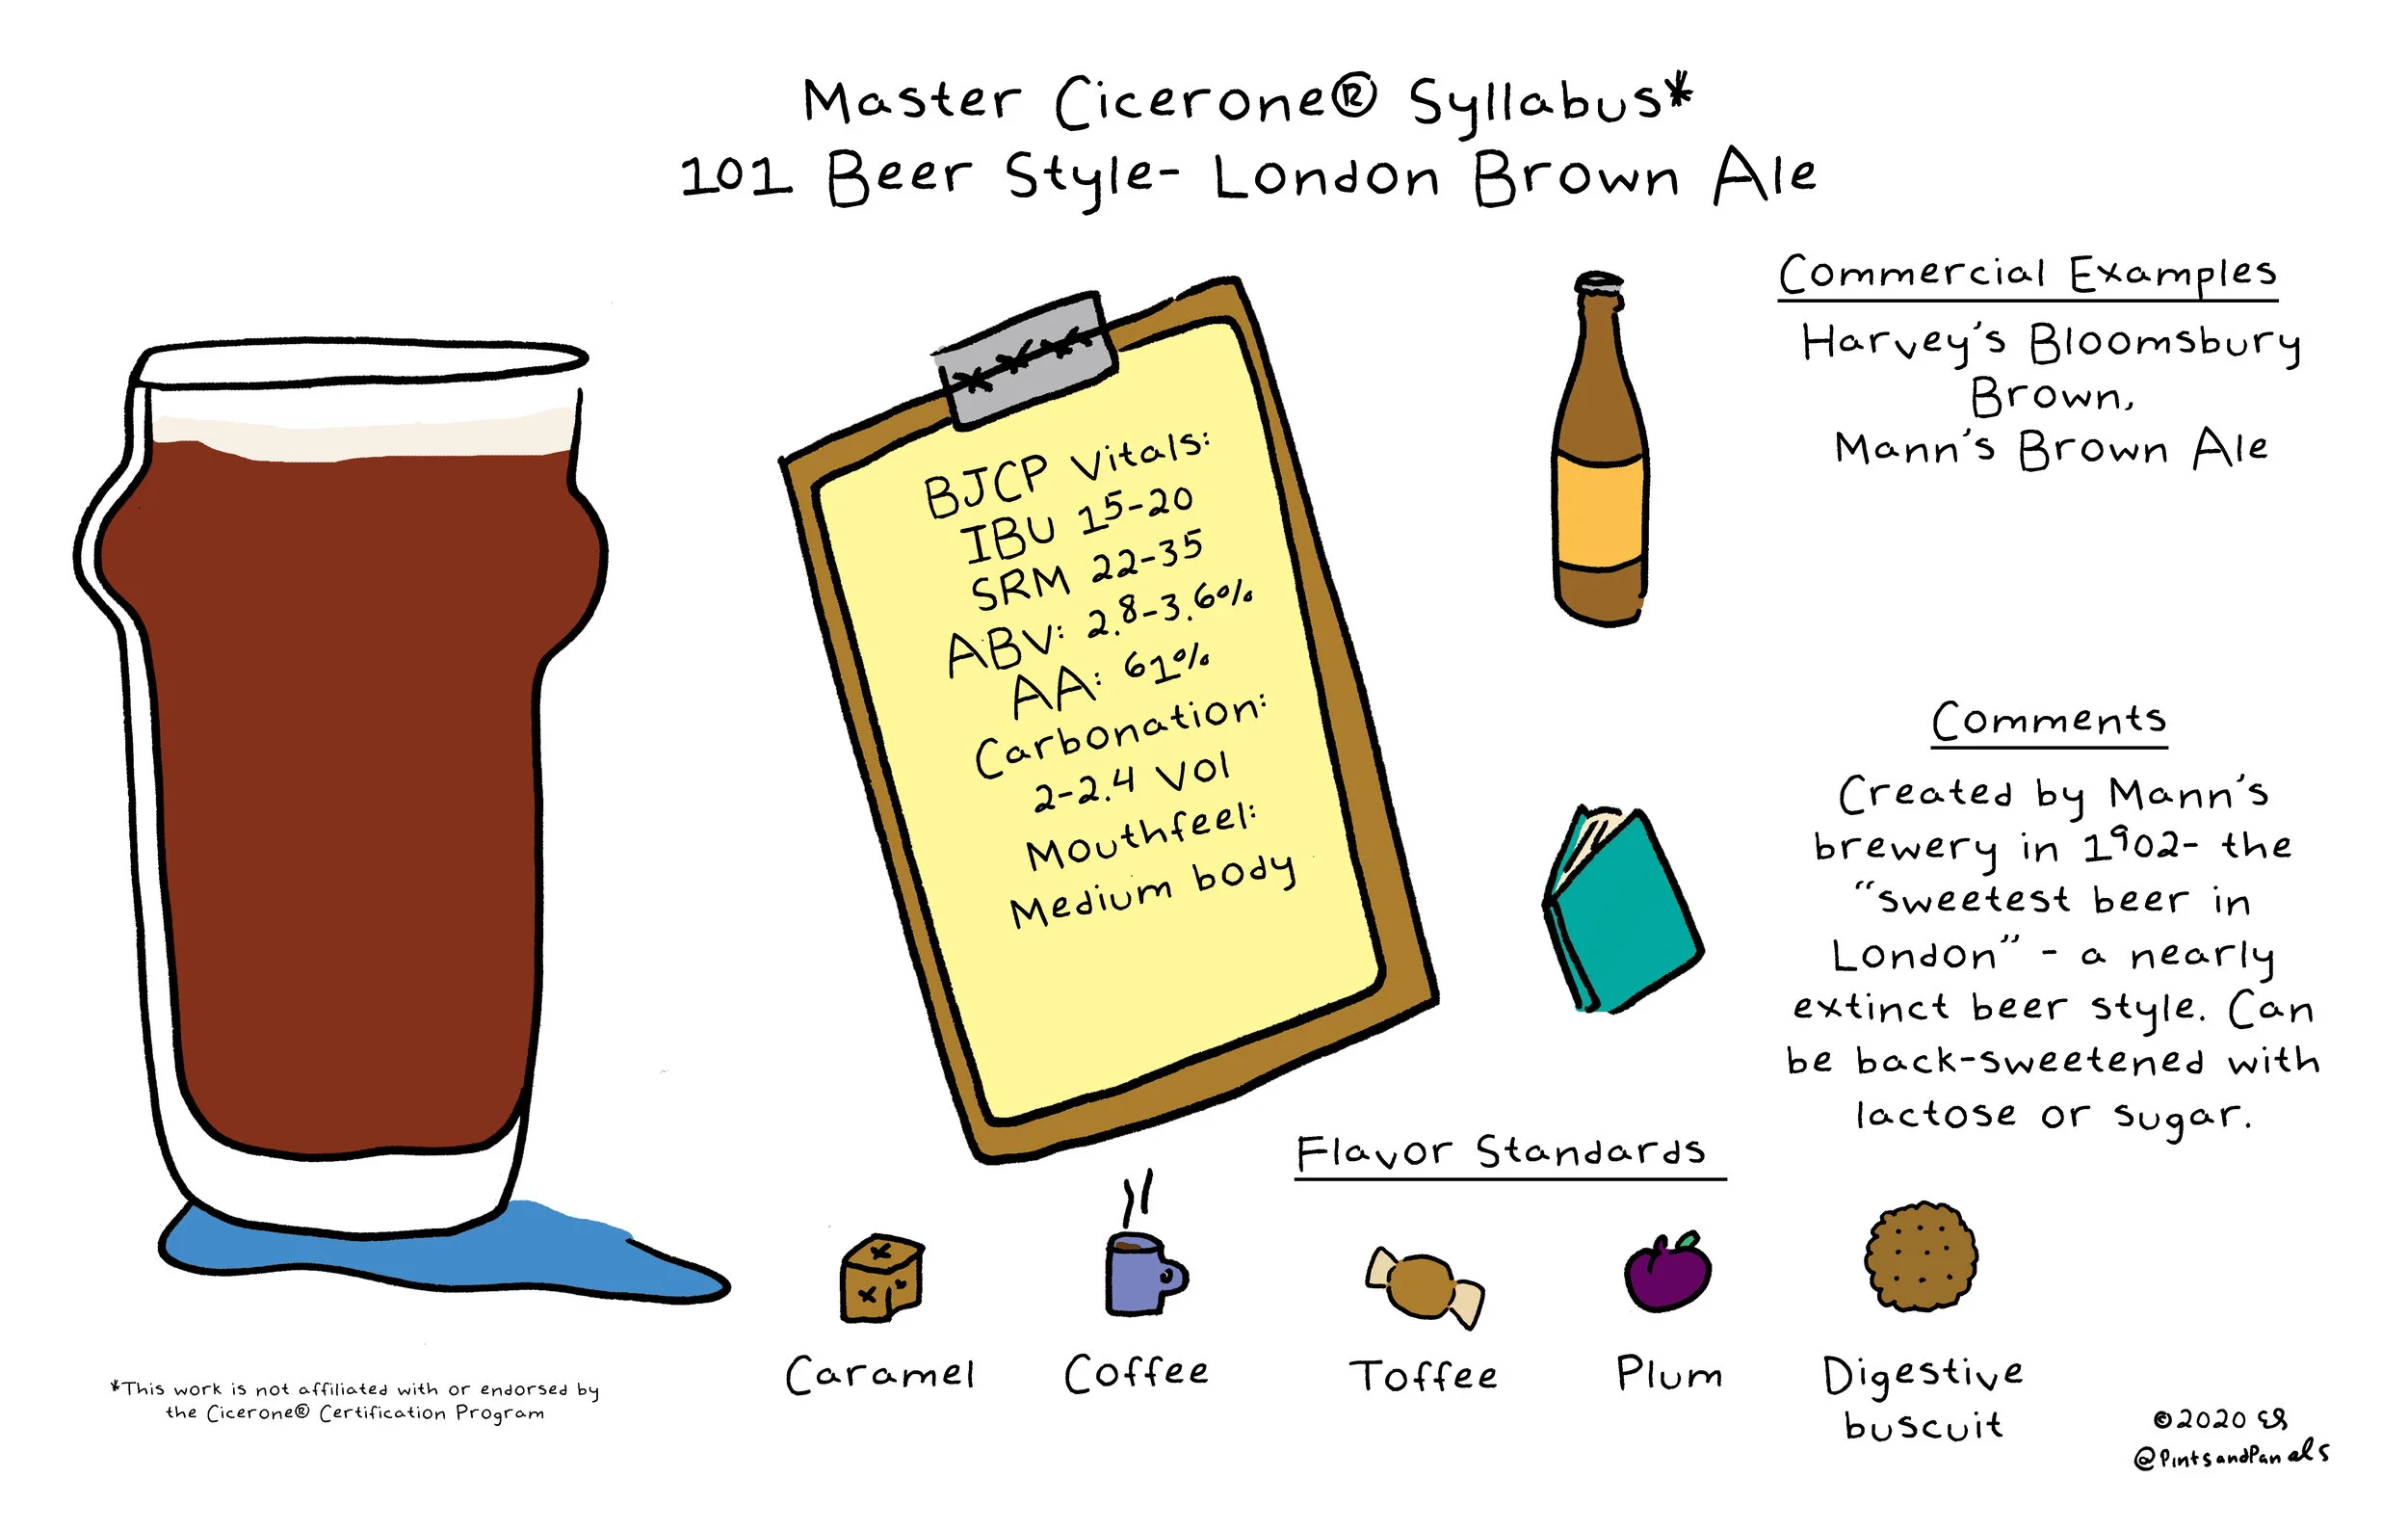 Master Cicerone® Syllabus*
101 Beer Style- London Brown Ale
BJCP Vitals:
IBU 15-20
SRM 22-35
ABV: 2.8-3.6%
AA: 61%
Carbonation:
2-2.4 Vol
Mouthfeel:
Medium body
Commercial Examples
Harvey's Bloomsbury
Brown,
Mann's Brown Ale
Comments
Created by Mann's
brewery in 1902- the
“sweetest beer in
London” - a nearly
extinct beer style. Can
be back-sweetened with
lactose or sugar.
Flavor Standards
Caramel
Coffee
Toffee
Plum
Digestive
buscuit
*This work is not affiliated with or endorsed by
the Cicerone® Certification Program
©2020 ES
@PintsandPanels